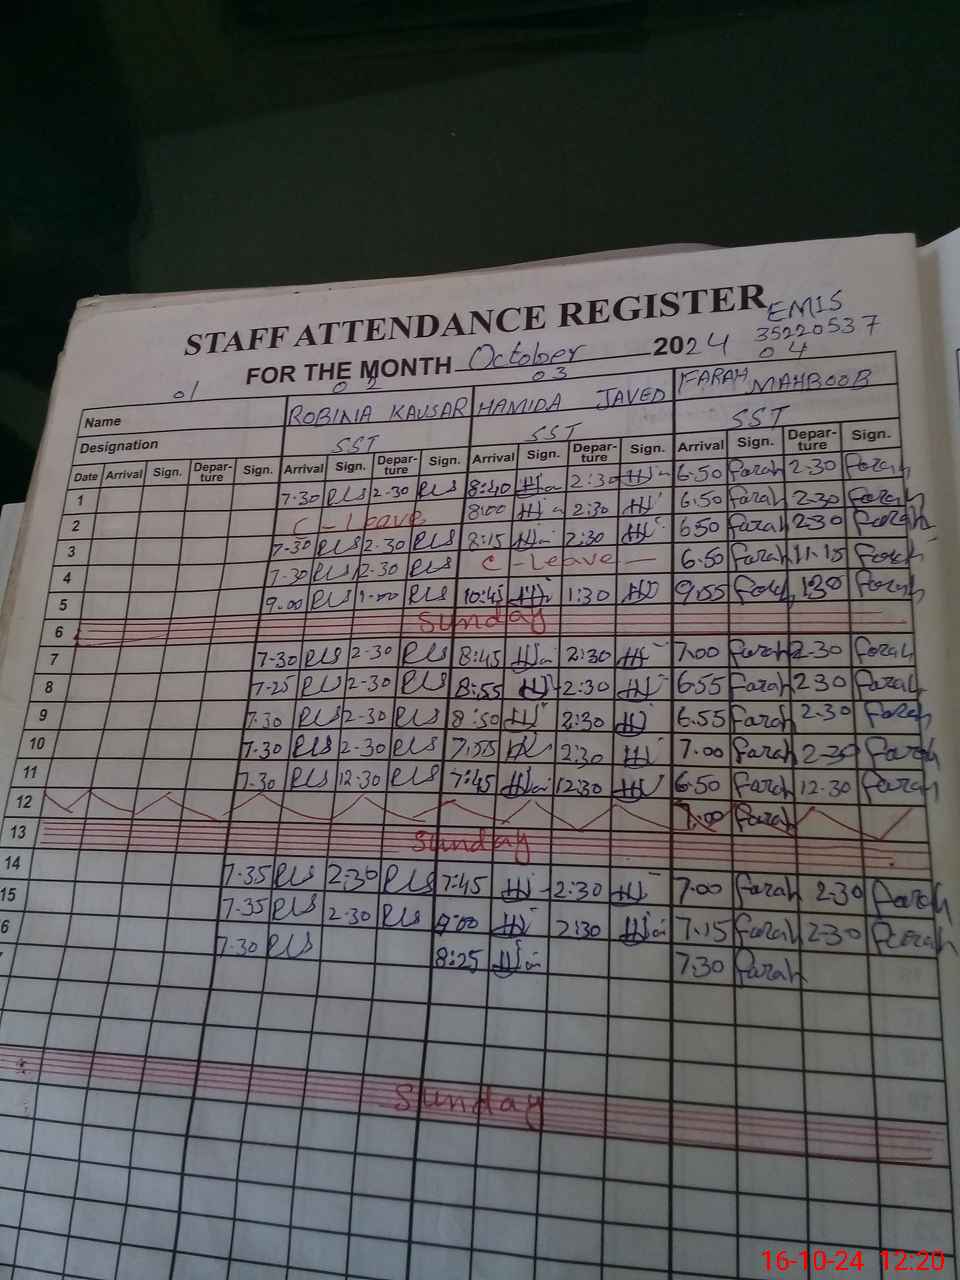 STAFF ATTENDANCE REGISTER EMIS
FOR THE MONTH October 2024 35220537
01 02 03 04
Name ROBINIA KAUSAR HAMIDA JAVED FARAH MAHBOOB
Designation SST SST SST
Date Arrival Sign. Depar-ture Sign. Arrival Sign. Depar-ture Sign. Arrival Sign. Depar-ture Sign. Arrival Sign. Depar-ture Sign.
1 7-30 RLS 2-30 RLS 8:40 2:30 6.50 Farah 2-30 Farah
2 C-Leave 8:00 2:30 6.50 Farah 2-30 Farah
3 7-30 RLS 2.30 RLS 8:15 2:30 6.50 Farah 2-30 Farah
4 7-30 RLS 2-30 RLS C-Leave 6.50 Farah 11.15 Farah
5 9.00 RLS RLS 10:45 1:30 9.55 Farah 1.30 Farah
6 Sunday
7 7-30 RLS 2-30 RLS 8:45 2:30 7.00 Farah 2-30 Farah
8 7-25 RLS 2-30 RLS 8:55 2:30 6.55 Farah 2.30 Farah
9 7.30 RLS 2-30 RLS 8:50 2:30 6.55 Farah 2.30 Farah
10 7.30 RLS 2-30 RLS 7:55 2:30 7.00 Farah 2-30 Farah
11 7.30 RLS 12-30 RLS 7:45 12:30 6.50 Farah 12.30 Farah
12 7:00 Farah
13 Sunday
14 7.35 RLS 2-30 RLS 7:45 2:30 7.00 Farah 2.30 Farah
15 7.35 RLS 2-30 RLS 9:00 2:30 7.15 Farah 2-30 Farah
6 7.30 RLS 8:25 7.30 Farah
Sunday
16-10-24 12:20